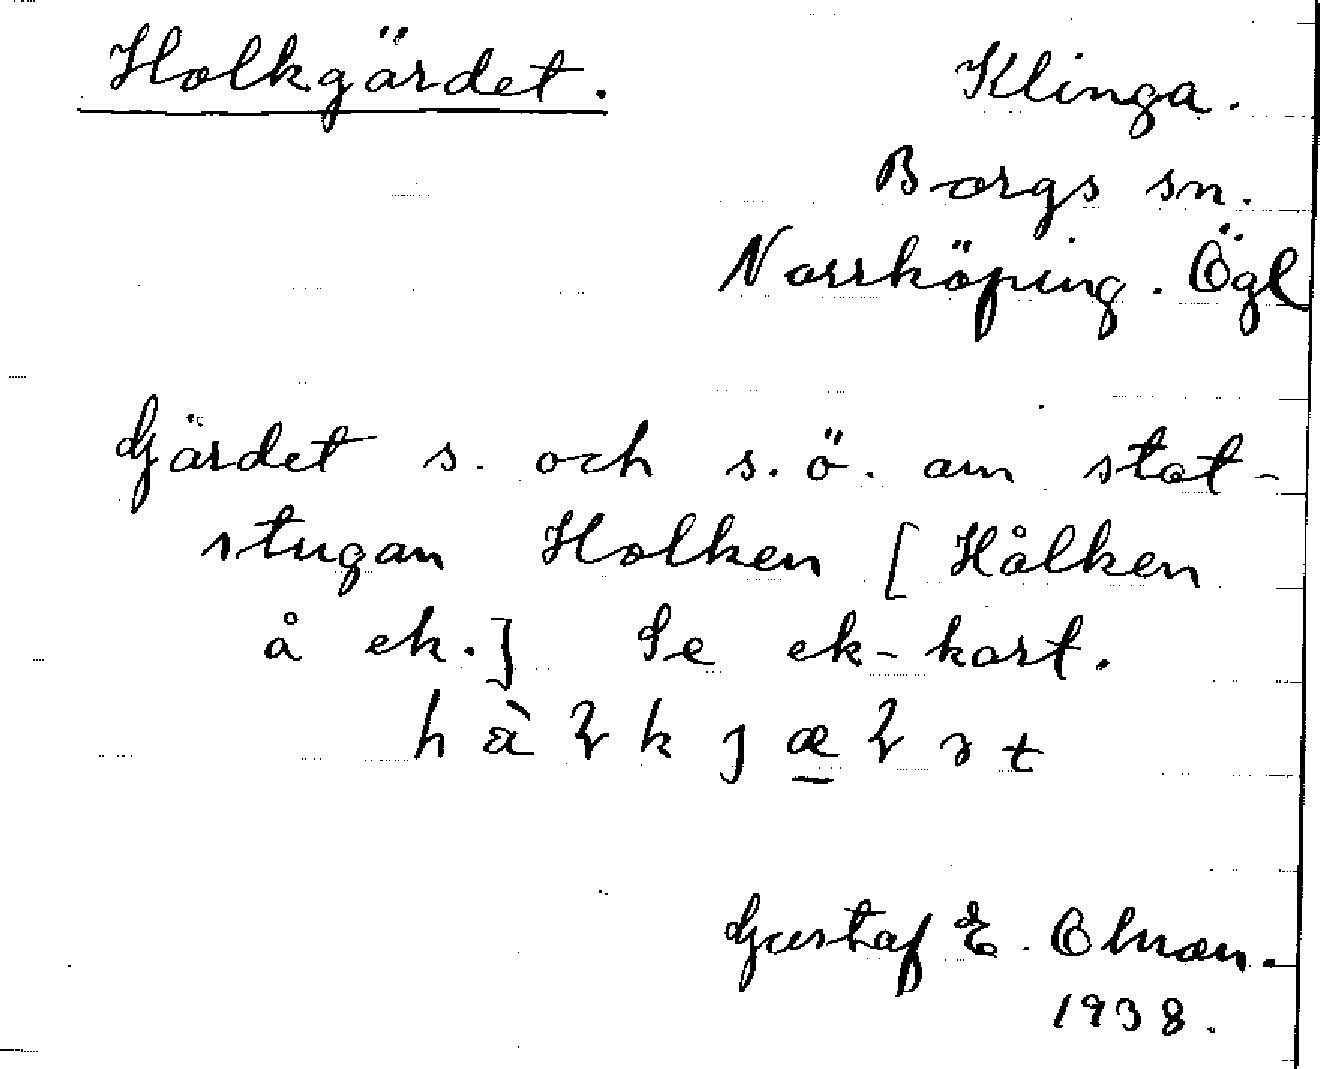 Holkgärdet.
Klinga.
Borgs sn.
Norrköping. Ögl
Gärdet s. och s.ö. om stat-
stugan Holken [Hålken
å ek.] Se ek-kart.
Gustaf E. Ohman.
1938.